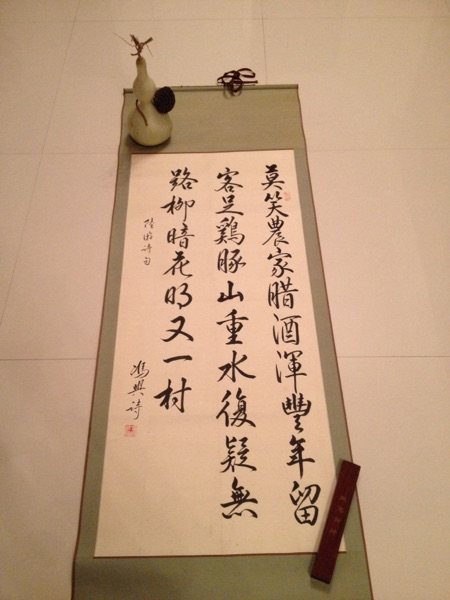 莫笑農家腊酒渾豐年留
客足鶏豚山重水復疑無
路柳暗花明又一村
陸游詩句
馮興詩